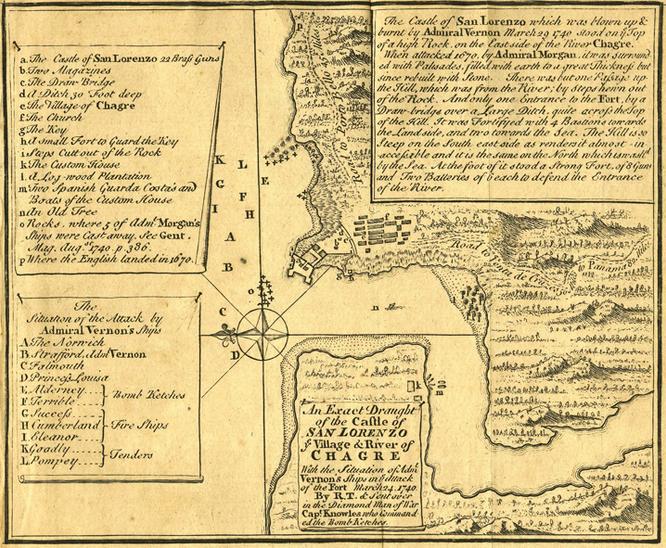 a. The Castle of San Lorenzo 22 Brass Guns
b. Two Magazines
c. The Draw Bridge
d. A Ditch 30 foot deep
e. The Village of Chagre
f. The Church
g. The Key
h. A small Fort to Guard the Key
i. Steps Cutt out of the Rock
k. The Custom House
l. A Log-wood Plantation
m Two Spanish Guarda Costa's and
Boats of the Custom House
n. An Old Tree
o Rocks, where 5 of Adml. Morgan's
Ships were Cast away. See Gent.
Mag. Augst. 1740. p. 386.
p. Where the English landed in 1670.
The
Situation of the Attack by
Admiral Vernon's Ships
A The Norwich
B Strafford, Adml. Vernon
C Falmouth
D Princess Louisa
E Alderney
F Terrible
Bomb Ketches
G Success
H Cumberland
I Eleanor
Fire Ships
K Goodly
L Pompey
Tenders
The Castle of San Lorenzo which was blown up &
burnt by Admiral Vernon March 29 1740 stood on ye Top
of a high Rock, on the East side of the River Chagre.
When attacked 1670. by Admiral Morgan, it was surround
ed with Palisades, filled with earth to a great Thickness but
since rebuilt with Stone. There was but one Passage up
the Hill, which was from the River; by Steps hewn out
of the Rock. And only one Entrance to the Fort, by a
Draw-bridge over a Large Ditch, quite across the Top
of the Hill. It was Fortifyed with 4 Bastions towards
the Land side, and two towards the Sea. The Hill is so
Steep on the South east side as renders it almost in-
accessable and it is the same on the North which is wash'd
by the Sea. At the foot of it stood a Strong Fort, of 8 Guns
and Two Batteries of 6 each to defend the Entrance
of the River.
Road to Porto
Road to
to Panama
p
K
L
E
G
F
I
H
A
B
C
D
o
n
m
l
k
An Exact Draught
of the Castle of
SAN LORENZO
ye Village & River of
CHAGRE
With the Situation of Adml.
Vernon's Ships in ye Attack
of the Fort March 24. 1740.
By R.T. & Sent over
in the Diamond Man of War
Capt. Knowles who Command
ed the Bomb Ketches.